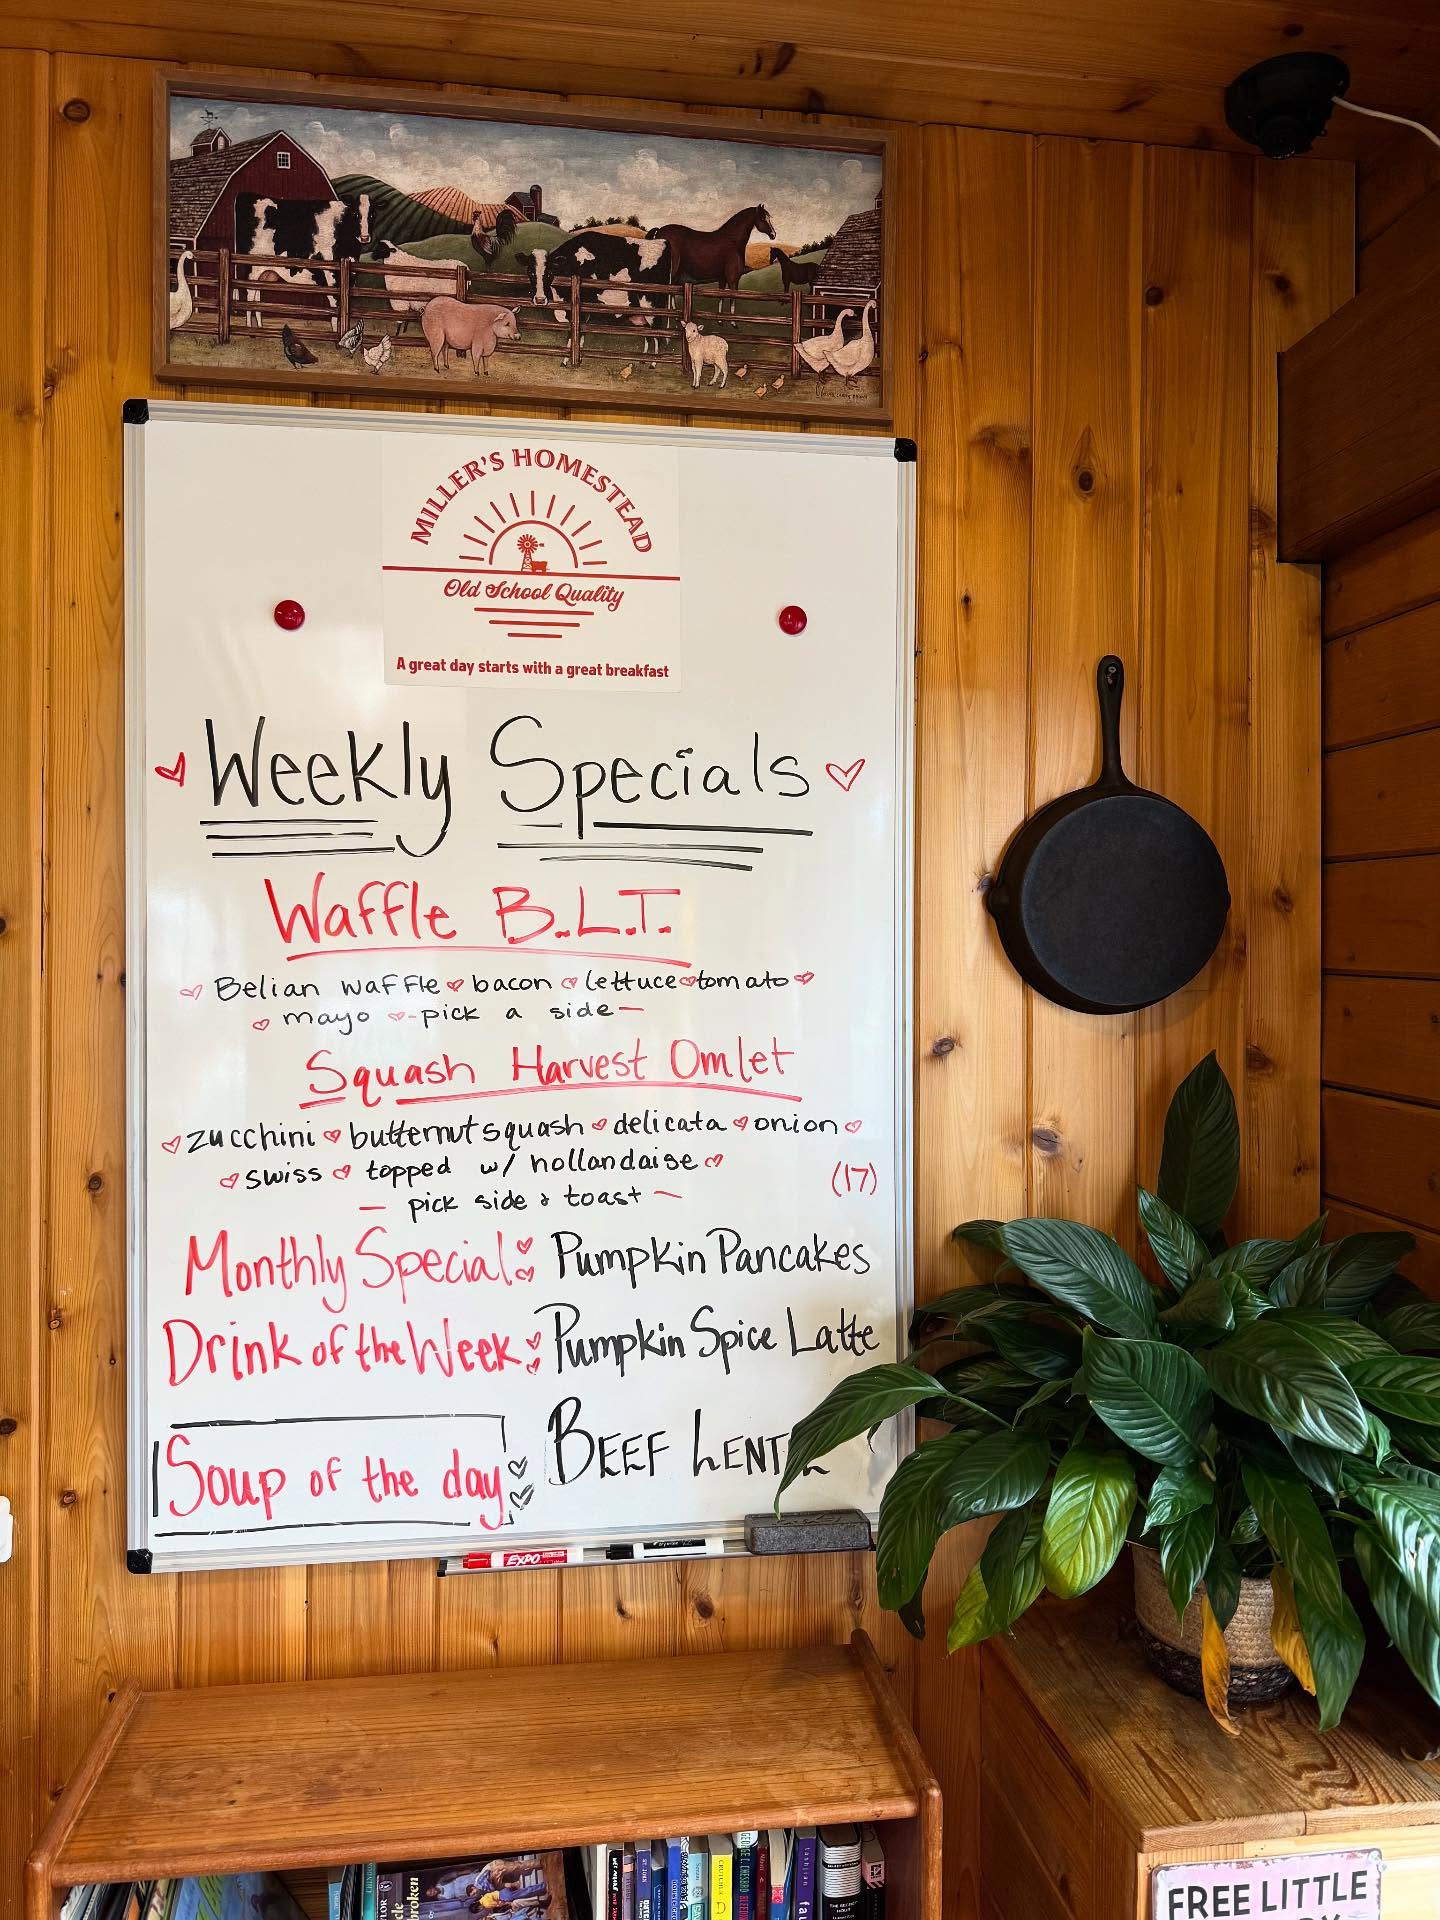 MILLER'S HOMESTEAD
Old School Quality
A great day starts with a great breakfast
Weekly Specials
Waffle B.L.T.
Belian waffle bacon lettuce tomato
mayo - pick a side -
Squash Harvest Omlet
zucchini butternut squash delicata onion
swiss topped w/ hollandaise
(17)
- pick side & toast -
Monthly Special: Pumpkin Pancakes
Drink of the Week: Pumpkin Spice Latte
Soup of the day: BEEF
EXPO
FREE LITTLE